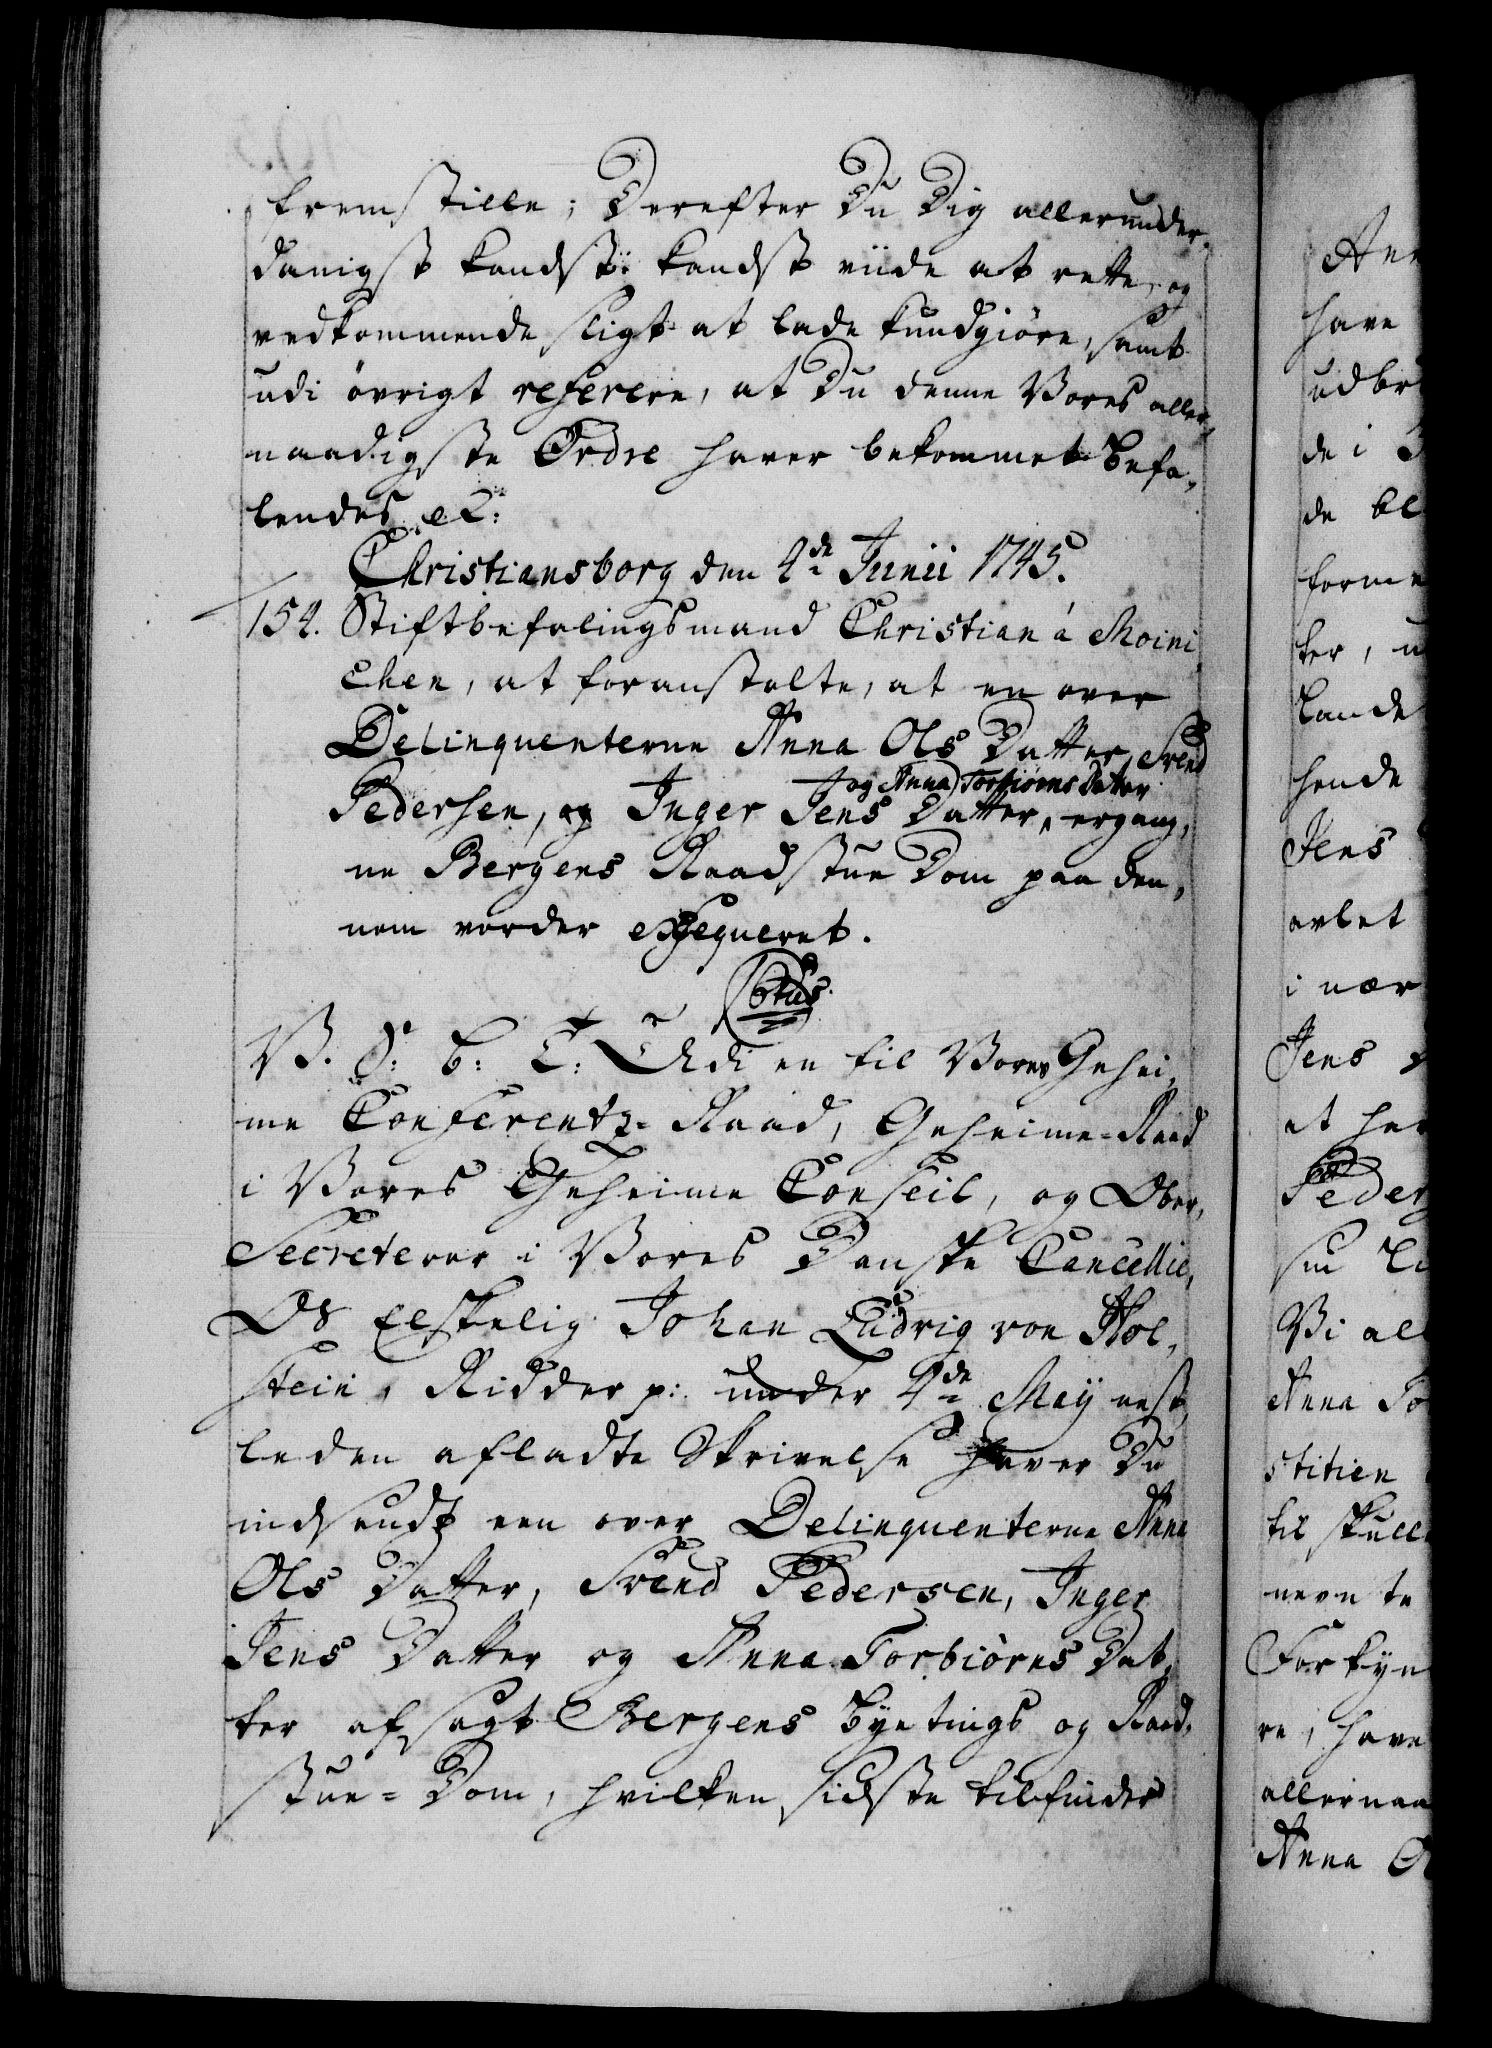 fremstille; Derefter Du Dig allerunder-
danigst kandst: kandst viide at rette, og
vedkommende sligt at lade kundgiöre, samt
udi övrigt referere, at Du denne Vores aller-
naadigste Ordre haver bekommet. Befa-
lendes etc:
Christiansborg den 4de Junii 1745.
154. Stiftbefalingsmand Christian á Moini-
chen, at foranstalte, at en over
Delinquenterne Anna Ols Datter, Svend
og Anna Torbiörns Datter
Pedersen, og Inger Jens Datter, ergang-
ne Bergens Raadstue Dom paa den-
nem vorder exseqveret.
V. G: b: T: Udi en til Vores Gehei-
me Conferentz-Raad, Geheime-Raad
i Vores Geheime Conseil, og Ober-
Secreterer i Vores Danske Cancellie,
Os Elskelig Johan Ludvig von Hol-
stein, Ridder p: under 4de Maÿ nest-
leden afladte Skrivelse haver Du
indsendt een over Delinquenterne Anna
Ols Datter, Svend Pedersen, Inger
Jens Datter og Anna Torbiörns Dat-
ter afsagt Bergens Byetings og Raad-
stue-Dom, hvilken sidste tilfinder
have
udbr
de i
de bl
ter, u
Lande
hende
Jens
avlet
i nær
Jens
et her
Peder
Vi all
Anna To
stitien
til skulle
nevnte
Forkyn
re, have
allernaa
Anna O